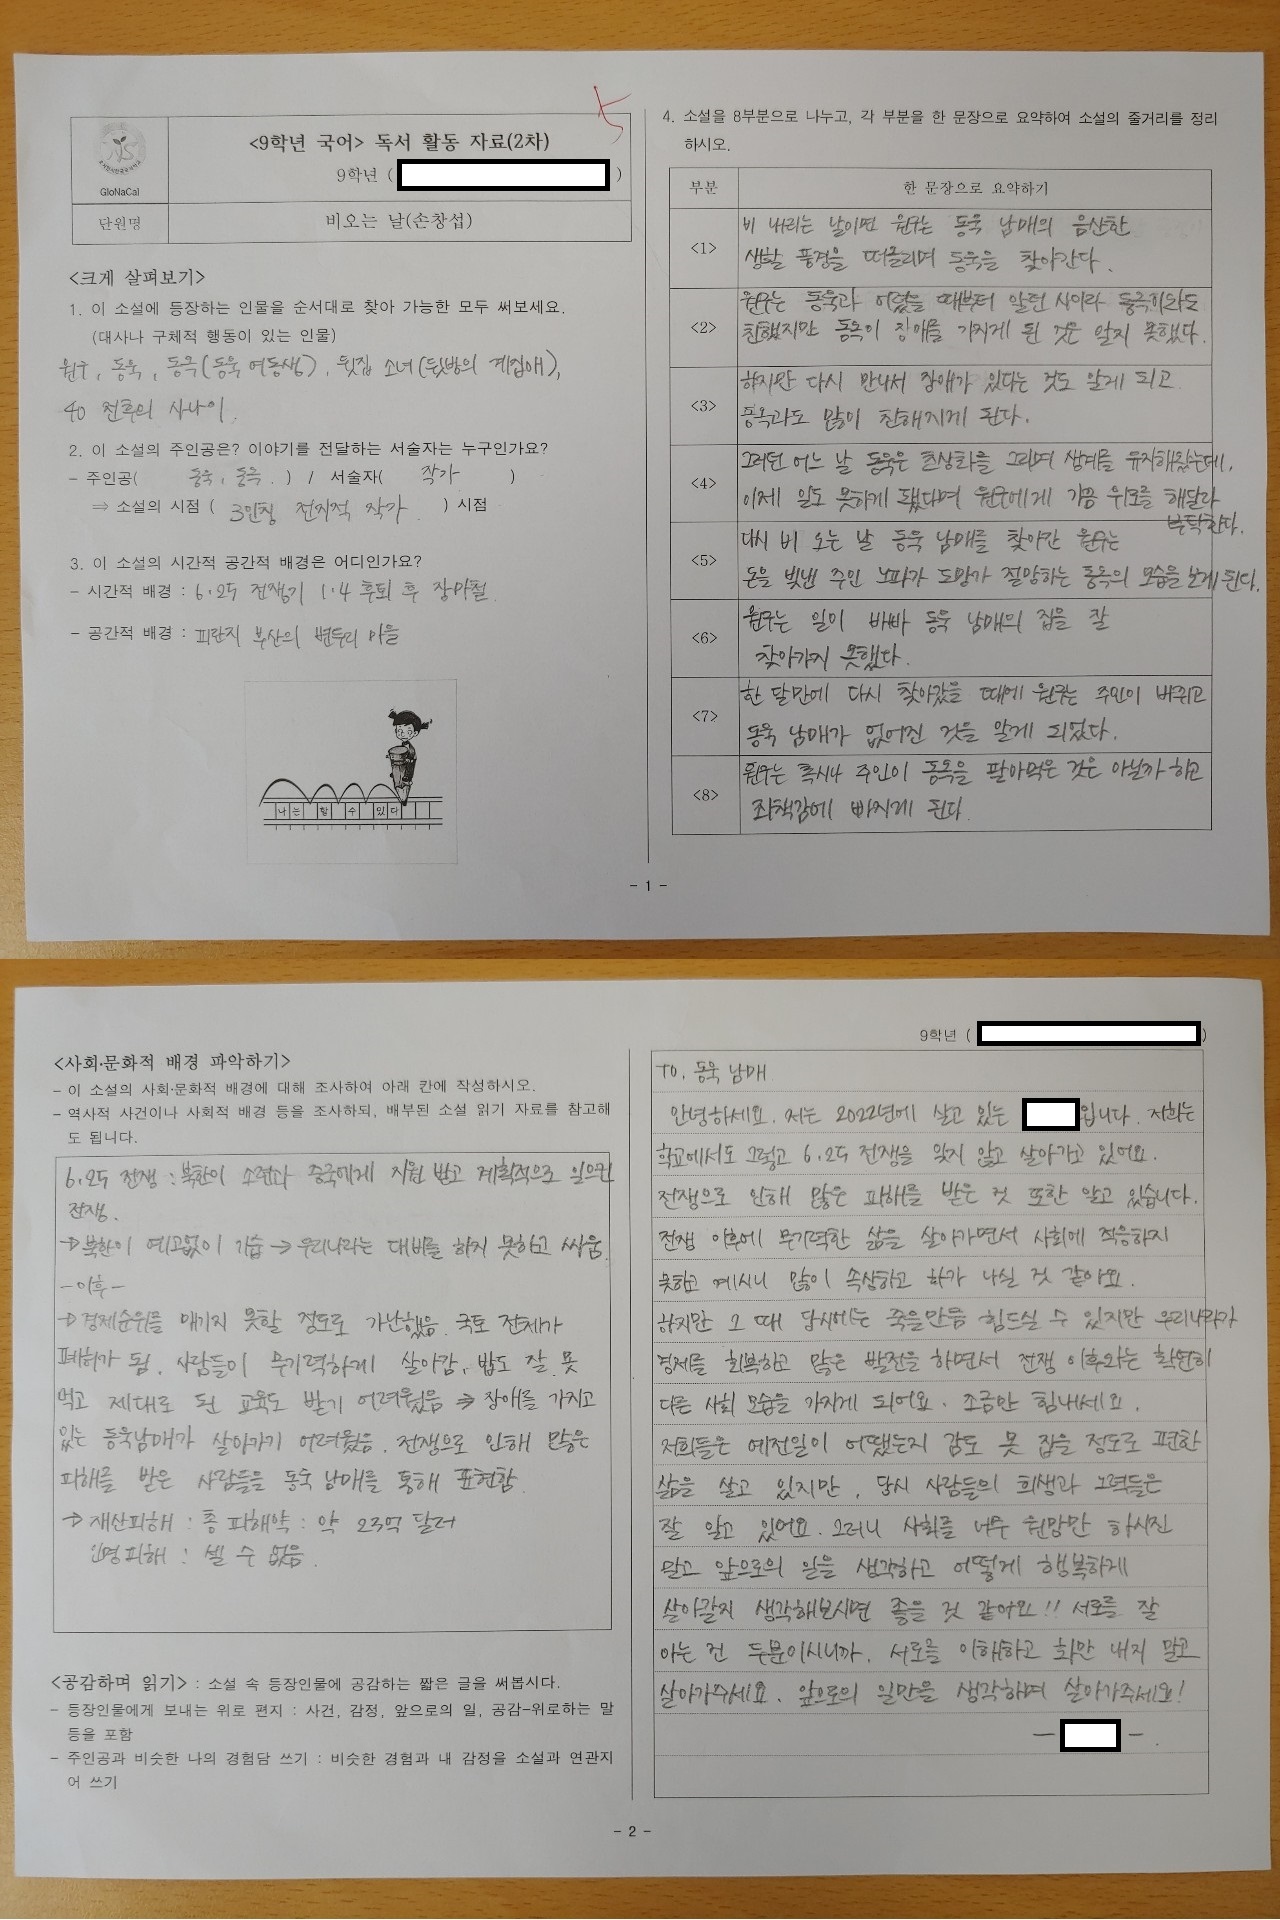 GloNaCal
<9학년 국어> 독서 활동 자료(2차)
9학년 ( )
단원명
비오는 날(손창섭)
<크게 살펴보기>
1. 이 소설에 등장하는 인물을 순서대로 찾아 가능한 모두 써보세요.
(대사나 구체적 행동이 있는 인물)
원구, 동욱, 동옥(동욱 여동생), 뒷집 소녀(뒷방의 계집애),
40 전후의 사나이.
2. 이 소설의 주인공은? 이야기를 전달하는 서술자는 누구인가요?
- 주인공( 동욱, 동옥. ) / 서술자( 작가 )
⇒ 소설의 시점 ( 3인칭 전지적 작가. ) 시점
3. 이 소설의 시간적 공간적 배경은 어디인가요?
- 시간적 배경 : 6.25 전쟁기 1.4 후퇴 후 장마철.
- 공간적 배경 : 피란지 부산의 변두리 마을
나는 할 수 있다
4. 소설을 8부분으로 나누고, 각 부분을 한 문장으로 요약하여 소설의 줄거리를 정리
하시오.
부분 한 문장으로 요약하기
<1> 비 내리는 날이면 원구는 동욱 남매의 음산한
생활 풍경을 떠올리며 동욱을 찾아간다.
<2> 원구는 동욱과 어렸을 때부터 알던 사이라 동옥이와도
친했지만 동옥이 장애를 가지게 된 것은 알지 못했다.
<3> 하지만 다시 만나서 장애가 있다는 것도 알게 되고
동옥과도 많이 친해지게 된다.
<4> 그러던 어느 날 동욱은 초상화를 그리며 생계를 유지해왔는데,
이제 일도 못하게 됐다며 원구에게 가끔 위로를 해달라
부탁한다.
<5> 다시 비 오는 날 동욱 남매를 찾아간 원구는
돈을 빚낸 주인 노파가 도망가 절망하는 동옥의 모습을 보게 된다.
<6> 원구는 일이 바빠 동욱 남매의 집을 잘
찾아가지 못했다.
<7> 한 달만에 다시 찾아갔을 때에 원구는 주인이 바뀌고
동욱 남매가 없어진 것을 알게 되었다.
<8> 원구는 혹시나 주인이 동옥을 팔아먹은 것은 아닐까 하고
죄책감에 빠지게 된다.
- 1 -
<사회·문화적 배경 파악하기>
- 이 소설의 사회·문화적 배경에 대해 조사하여 아래 칸에 작성하시오.
- 역사적 사건이나 사회적 배경 등을 조사하되, 배부된 소설 읽기 자료를 참고해
도 됩니다.
6.25 전쟁 : 북한이 소련과 중국에게 지원 받고 계획적으로 일으킨
전쟁.
→ 북한이 예고없이 기습 → 우리나라는 대비를 하지 못하고 싸움.
-이후-
→ 경제순위를 매기지 못할 정도로 가난했음. 국토 전체가
폐허가 됨. 사람들이 무기력하게 살아감, 밥도 잘 못
먹고 제대로 된 교육도 받기 어려웠음 ⇒ 장애를 가지고
있는 동욱남매가 살아가기 어려웠음. 전쟁으로 인해 많은
피해를 받은 사람들을 동욱 남매를 통해 표현함.
→ 재산피해 : 총 피해약 : 약 23억 달러
인명피해 : 셀 수 없음.
<공감하며 읽기> : 소설 속 등장인물에 공감하는 짧은 글을 써봅시다.
- 등장인물에게 보내는 위로 편지 : 사건, 감정, 앞으로의 일, 공감-위로하는 말
등을 포함
- 주인공과 비슷한 나의 경험담 쓰기 : 비슷한 경험과 내 감정을 소설과 연관지
어 쓰기
9학년 ( )
TO. 동욱 남매.
안녕하세요. 저는 2022년에 살고 있는 입니다. 저희는
학교에서도 그렇고 6.25 전쟁을 잊지 않고 살아가고 있어요.
전쟁으로 인해 많은 피해를 받은 것 또한 알고 있습니다.
전쟁 이후에 무기력한 삶을 살아가면서 사회에 적응하지
못하고 계시니 많이 속상하고 화가 나실 것 같아요.
하지만 그 때 당시에는 죽을만큼 힘드실 수 있지만 우리나라가
경제를 회복하고 많은 발전을 하면서 전쟁 이후와는 확연히
다른 사회 모습을 가지게 되어요. 조금만 힘내세요.
저희들은 예전일이 어땠는지 감도 못 잡을 정도로 편한
삶을 살고 있지만, 당시 사람들의 희생과 노력들은
잘 알고 있어요. 그러니 사회를 너무 원망만 하시진
말고 앞으로의 일을 생각하고 어떻게 행복하게
살아갈지 생각해보시면 좋을 것 같아요!! 서로를 잘
아는 건 두분이시니까, 서로를 이해하고 화만 내지 말고
살아가주세요. 앞으로의 일만을 생각하며 살아가주세요!
- -.
- 2 -